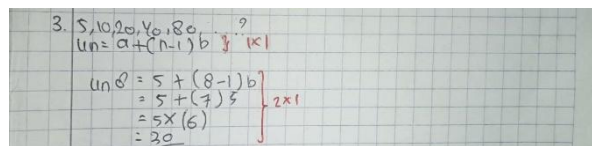 3. 5, 10, 20, 40, 80, ...?
Un = a + (n-1) b } 1x1
Un 8 = 5 + (8-1) b
= 5 + (7) 5
= 5 x (6)
= 30
} 2x1